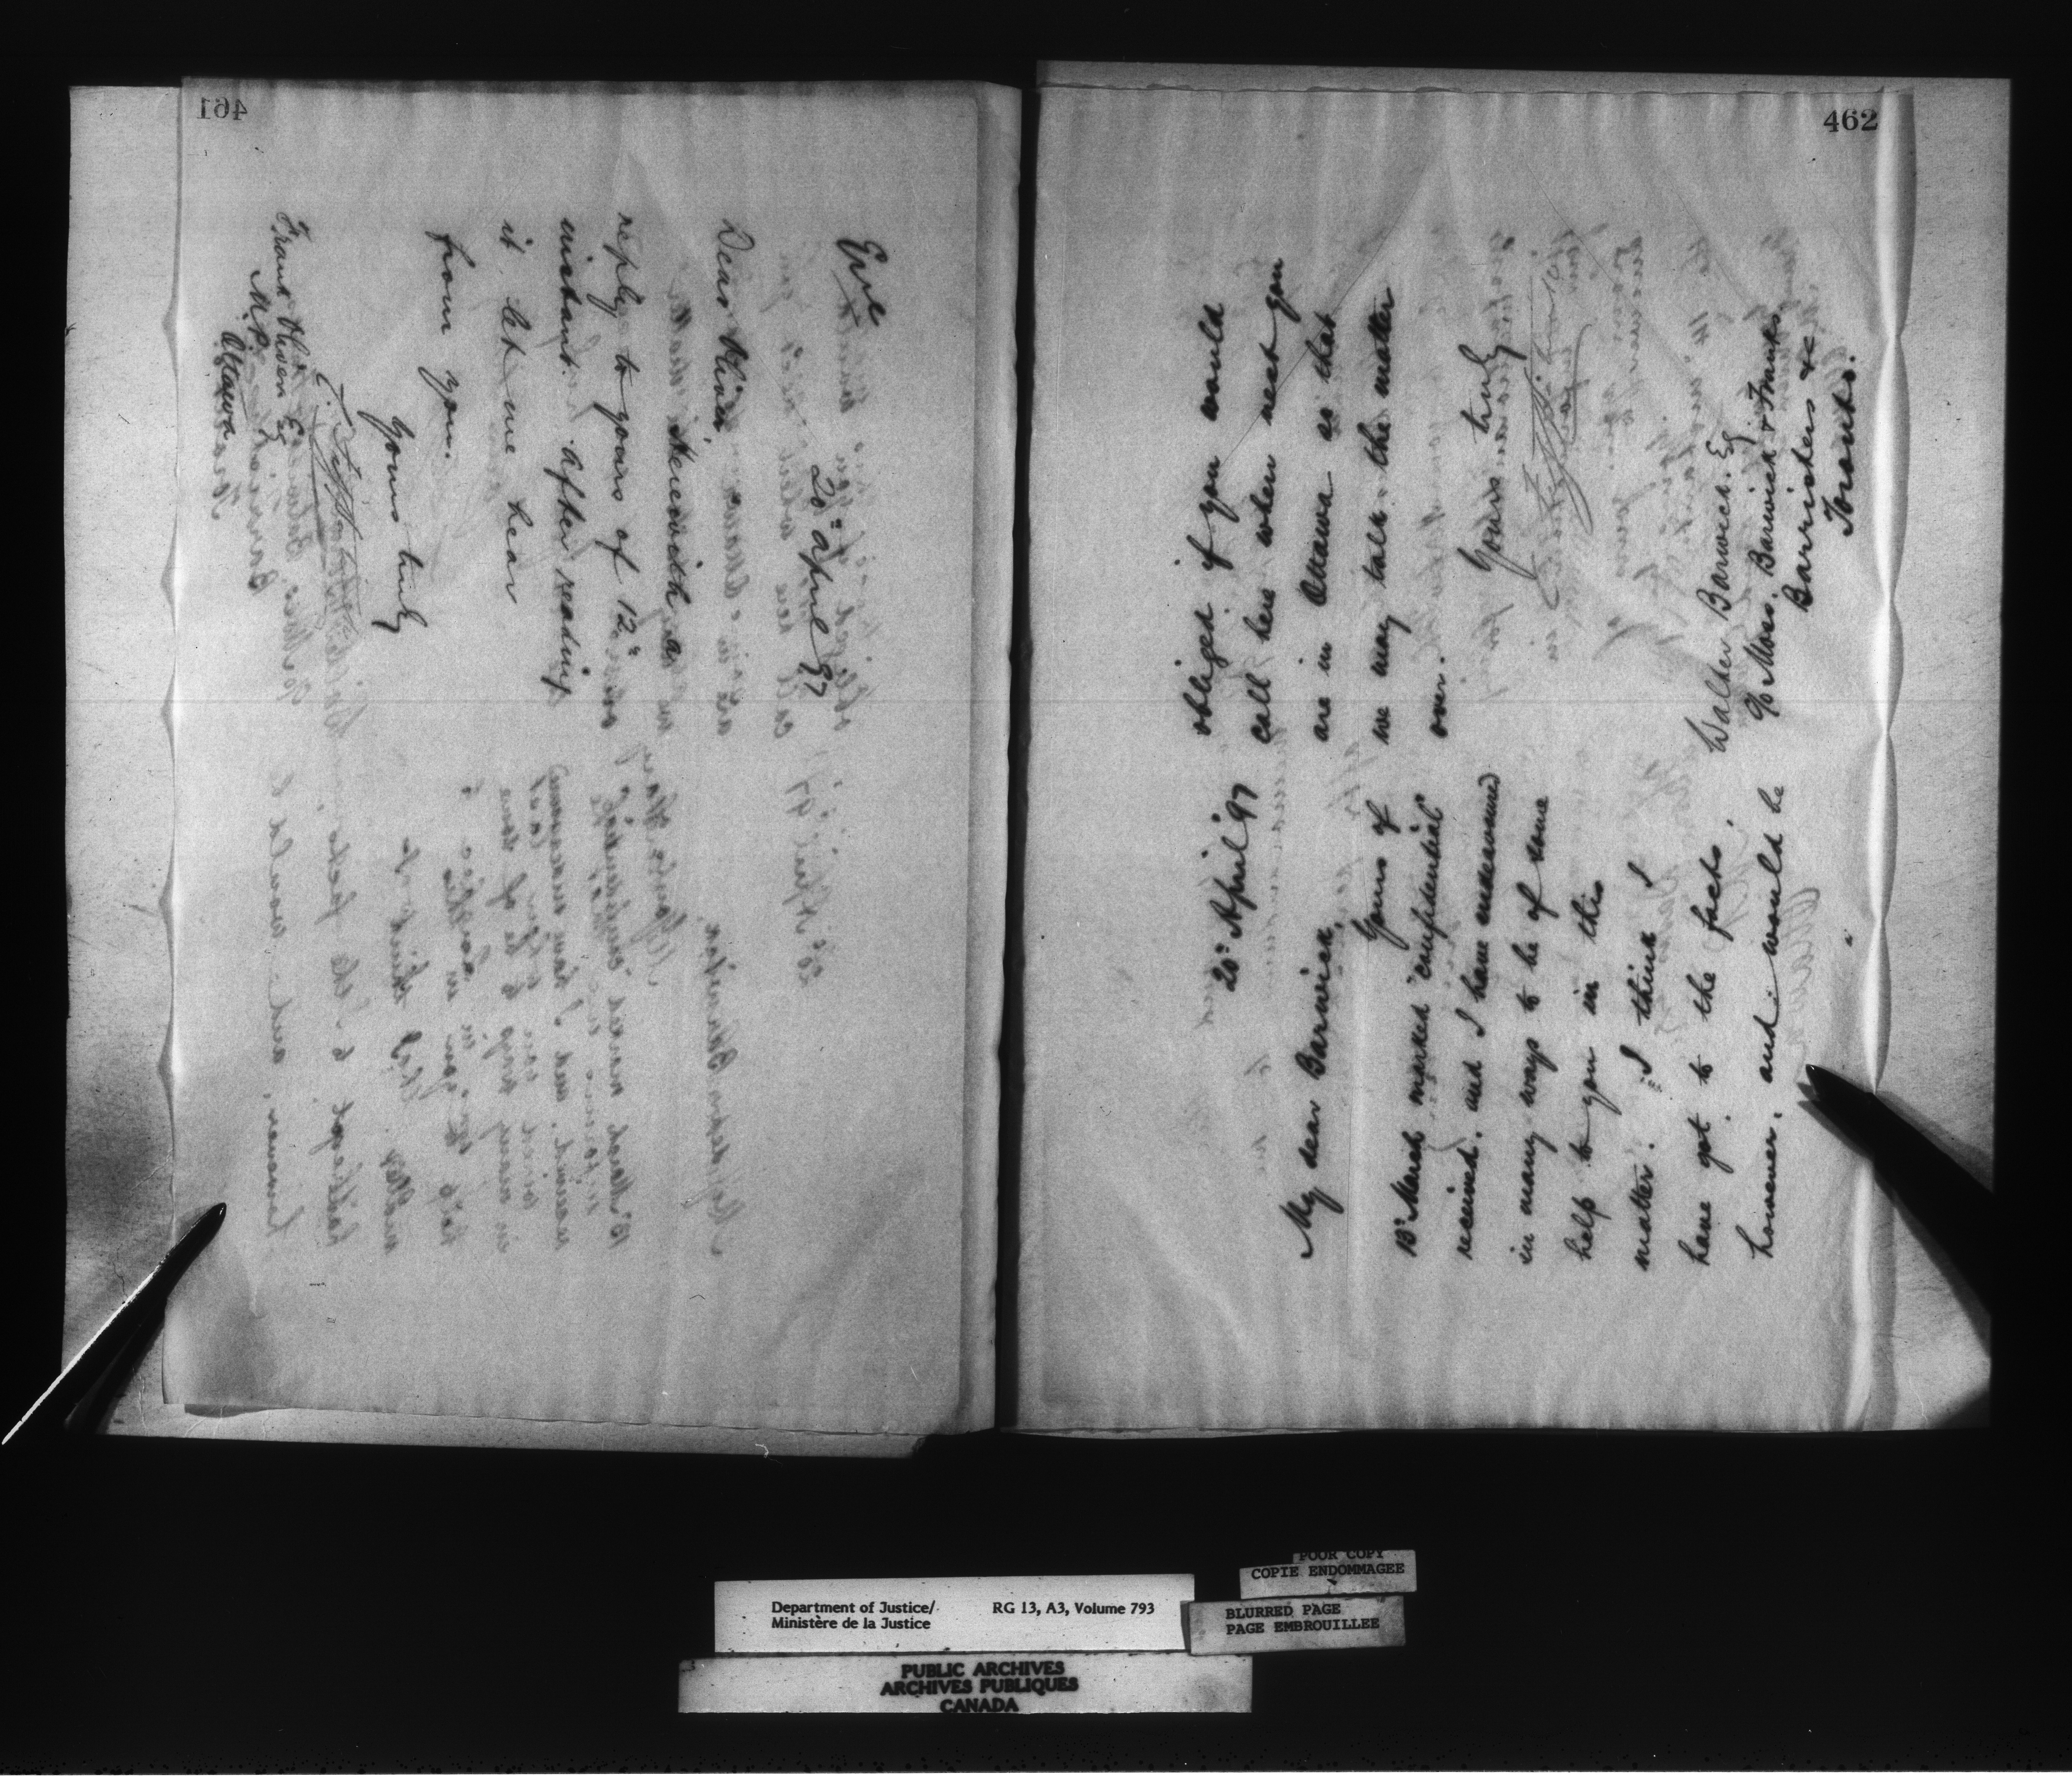 461
Epe
20" April 97
Dear Oliver,
Herewith a
reply to yours of 12"
instant. After reading
it let me hear
from you.
Yours truly
Frank Oliver Esq
M.P.
Ottawa
462
20" April '97
My dear Barwick,
Yours of
13" March marked "confidential"
received. and I have endeavoured
in many ways to be of some
help to you in this
matter. I think I
have got to the facts,
however, and would be
obliged if you would
call here when next you
are in Ottawa so that
we may talk the matter
over.
Yours truly
Walter Barwick. Esq
c/o Moss, Barwick & Franks,
Barristers &c
Toronto.
POOR COPY
COPIE ENDOMMAGEE
Department of Justice/
Ministère de la Justice
RG 13, A3, Volume 793
BLURRED PAGE
PAGE EMBROUILLEE
PUBLIC ARCHIVES
ARCHIVES PUBLIQUES
CANADA